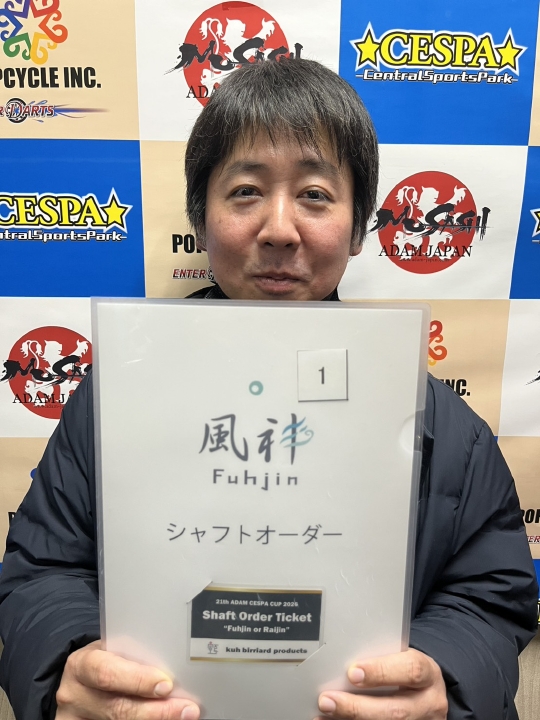 OPCYCLE INC.
ER DARTS
MUSASHI
ADAM
CESPA
-CentralSportsPark-
CESPA
CentralSportsPark-
POP
ENTER
MUSASHI
ADAM JAPAN
MUSASHI
ADAM J
INC.
POP
1
風神
Fuhjin
シャフトオーダー
21th ADAM CESPA CUP 2026
Shaft Order Ticket
"Fuhjin or Raijin"
kuh birriard products